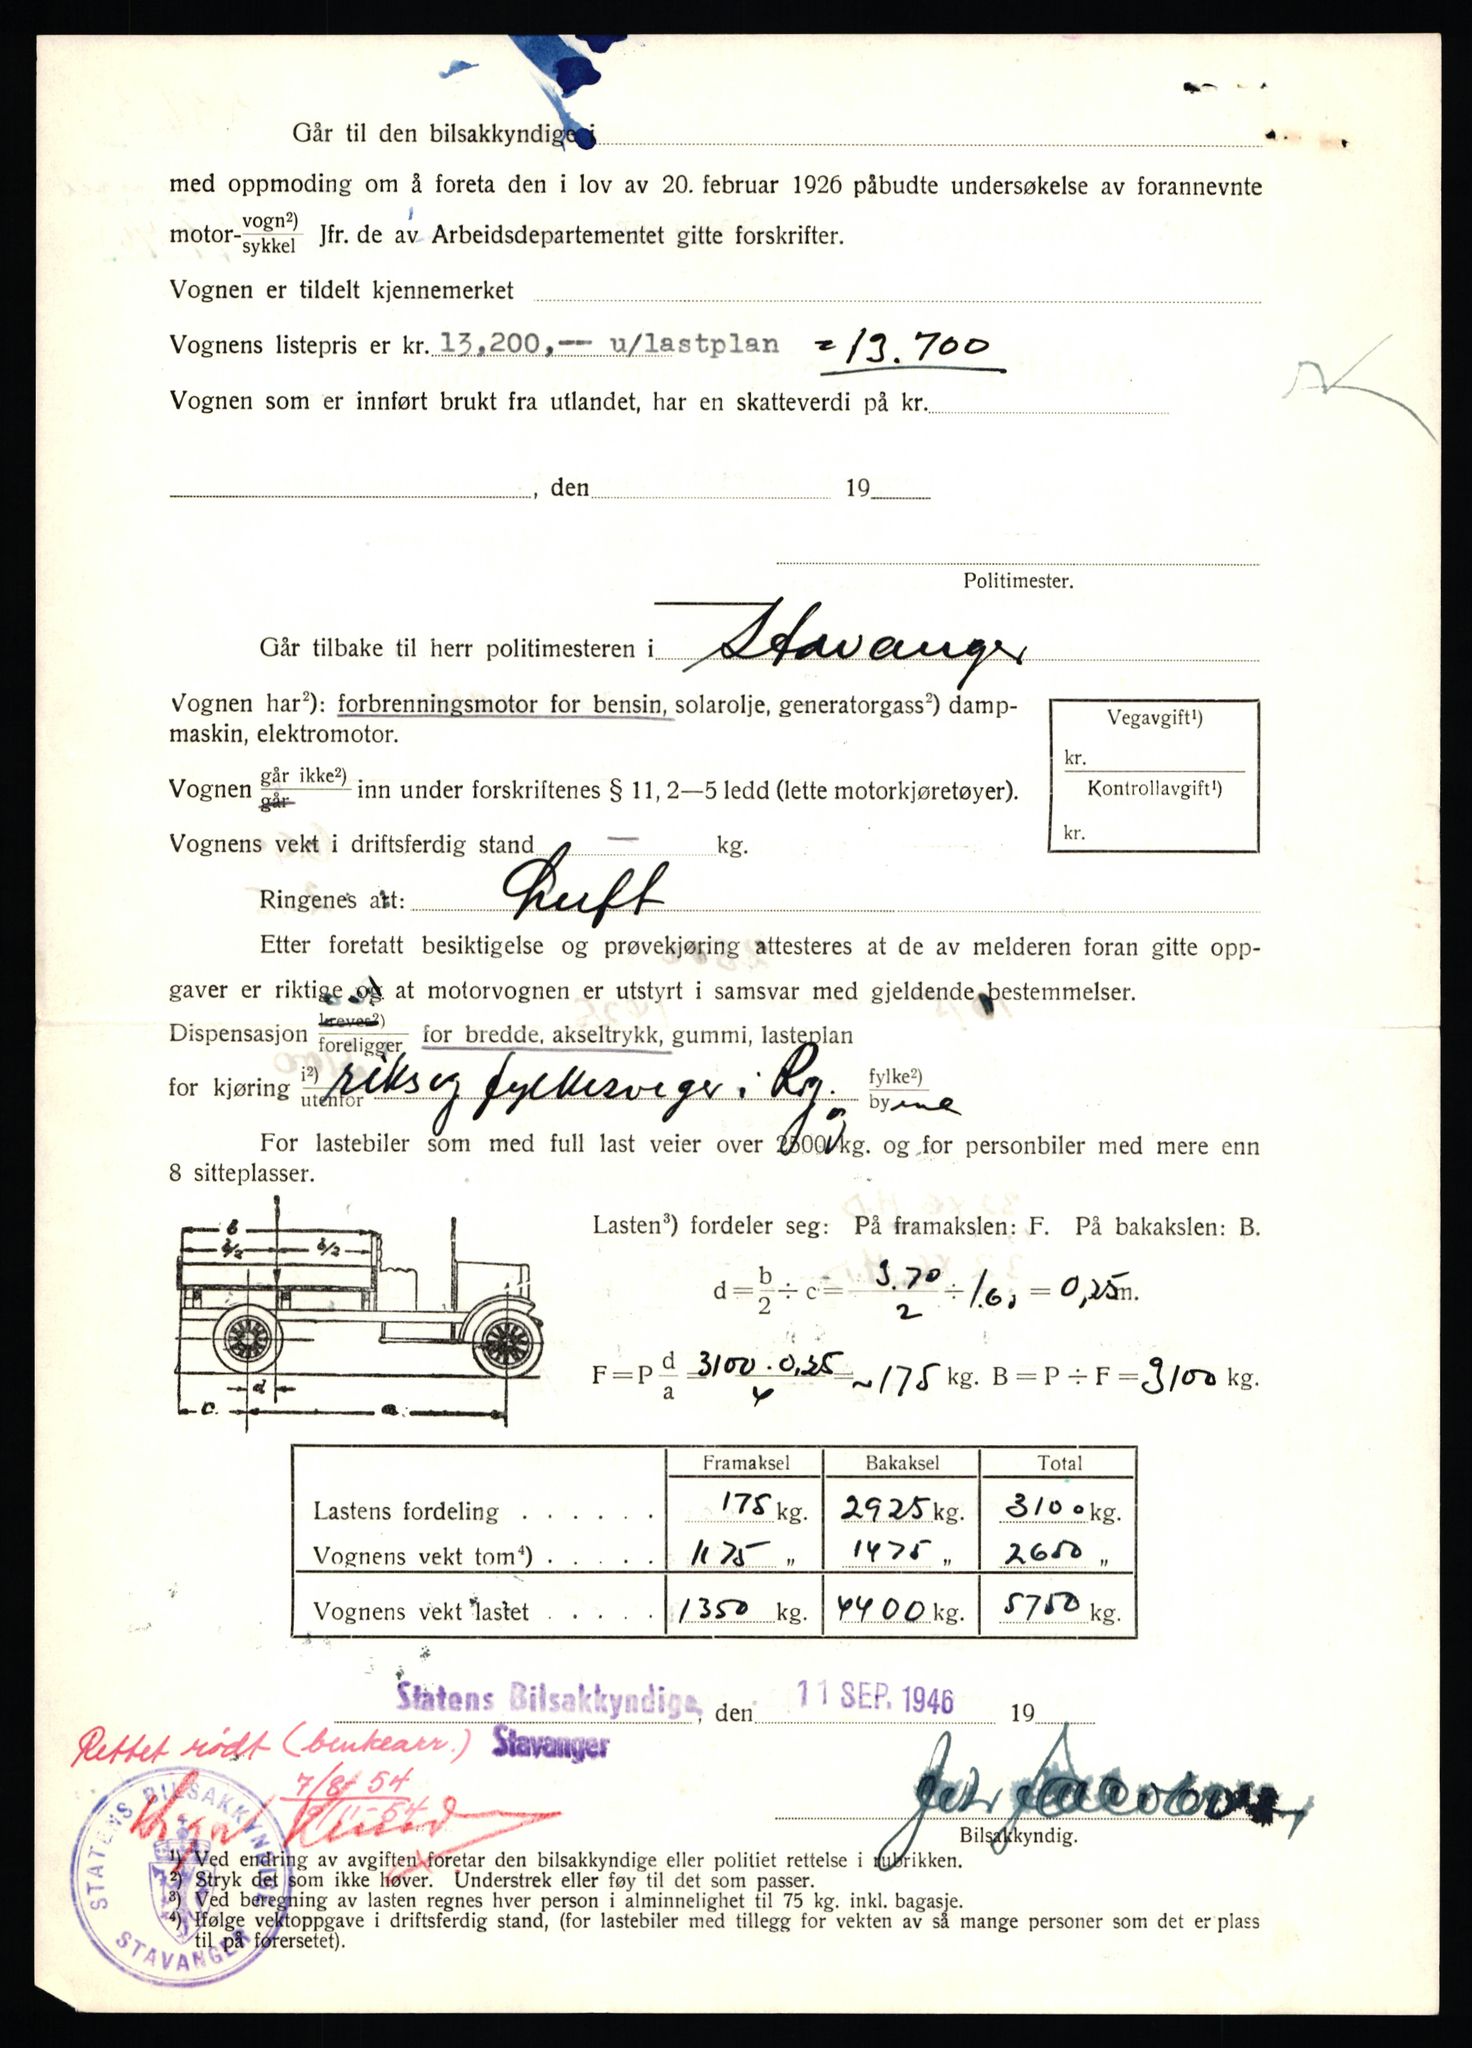 Går til den bilsakkyndige i
med oppmoding om å foreta den i lov av 20. februar 1926 påbudte undersøkelse av forannevnte
motor- vogn²) sykkel Jfr. de av Arbeidsdepartementet gitte forskrifter.
Vognen er tildelt kjennemerket
Vognens listepris er kr. 13,200,-- u/lastplan = 13.700
Vognen som er innført brukt fra utlandet, har en skatteverdi på kr.
, den 19
Politimester.
Går tilbake til herr politimesteren i Stavanger
Vognen har²): forbrenningsmotor for bensin, solarolje, generatorgass²) damp-
maskin, elektromotor.
Vegavgift¹)
kr.
Kontrollavgift¹)
kr.
Vognen går ikke²) går inn under forskriftenes § 11, 2—5 ledd (lette motorkjøretøyer).
Vognens vekt i driftsferdig stand — kg.
Ringenes art: Luft
Etter foretatt besiktigelse og prøvekjøring attesteres at de av melderen foran gitte opp-
gaver er riktige og at motorvognen er utstyrt i samsvar med gjeldende bestemmelser.
Dispensasjon kreves²) foreligger for bredde, akseltrykk, gummi, lasteplan
for kjøring i²) utenfor riks og fylkesveger i Rog. fylke²) byene
For lastebiler som med full last veier over 2500 kg. og for personbiler med mere enn
8 sitteplasser.
b
b/2 b/2
d
c. a.
Lasten³) fordeler seg: På framakslen: F. På bakakslen: B.
d = b/2 ÷ c = 3.70/2 ÷ 1.6 = 0,25 m.
F = P d/a 3100 · 0,25/4 = ~175 kg. B = P ÷ F = 3100 kg.
Framaksel Bakaksel Total
Lastens fordeling . . . . . . 175 kg. 2925 kg. 3100 kg.
Vognens vekt tom⁴) . . . . . 1175 „ 1475 „ 2650 „
Vognens vekt lastet . . . . . 1350 kg. 4400 kg. 5750 kg.
Statens Bilsakkyndige, den 11 SEP. 1946 19
Stavanger
Rettet rødt (benkearr.)
7/8-54
9/11-54
Bilsakkyndig.
STATENS BILSAKKYNDIGE
STAVANGER
¹) Ved endring av avgiften foretar den bilsakkyndige eller politiet rettelse i rubrikken.
²) Stryk det som ikke høver. Understrek eller føy til det som passer.
³) Ved beregning av lasten regnes hver person i alminnelighet til 75 kg. inkl. bagasje.
⁴) Ifølge vektoppgave i driftsferdig stand, (for lastebiler med tillegg for vekten av så mange personer som det er plass
til på førersetet).